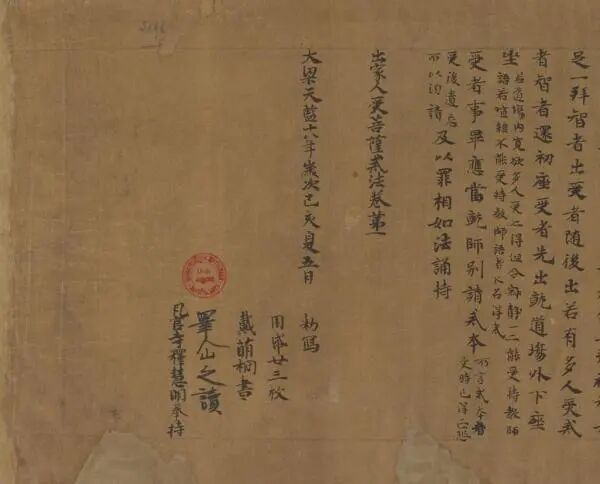 足一拜智者出受者隨後出若有多人受戒
者智者還初座受者先出就道場外下座
坐若道場內寬欲多人受之得但令寂靜一一能受持教師
語若喧雜不能受持教師語者不名得戒
受者事畢應當就師別請戒本所言戒本者
受時已得
受後遺忘
所以須請及以罪相如法誦持
出家人受菩薩戒法卷第一
大梁天監十八年歲次己亥夏五月 勑寫
用紙廿三枚
戴萌桐書
睪山之讀
瓦官寺釋慧明奉持